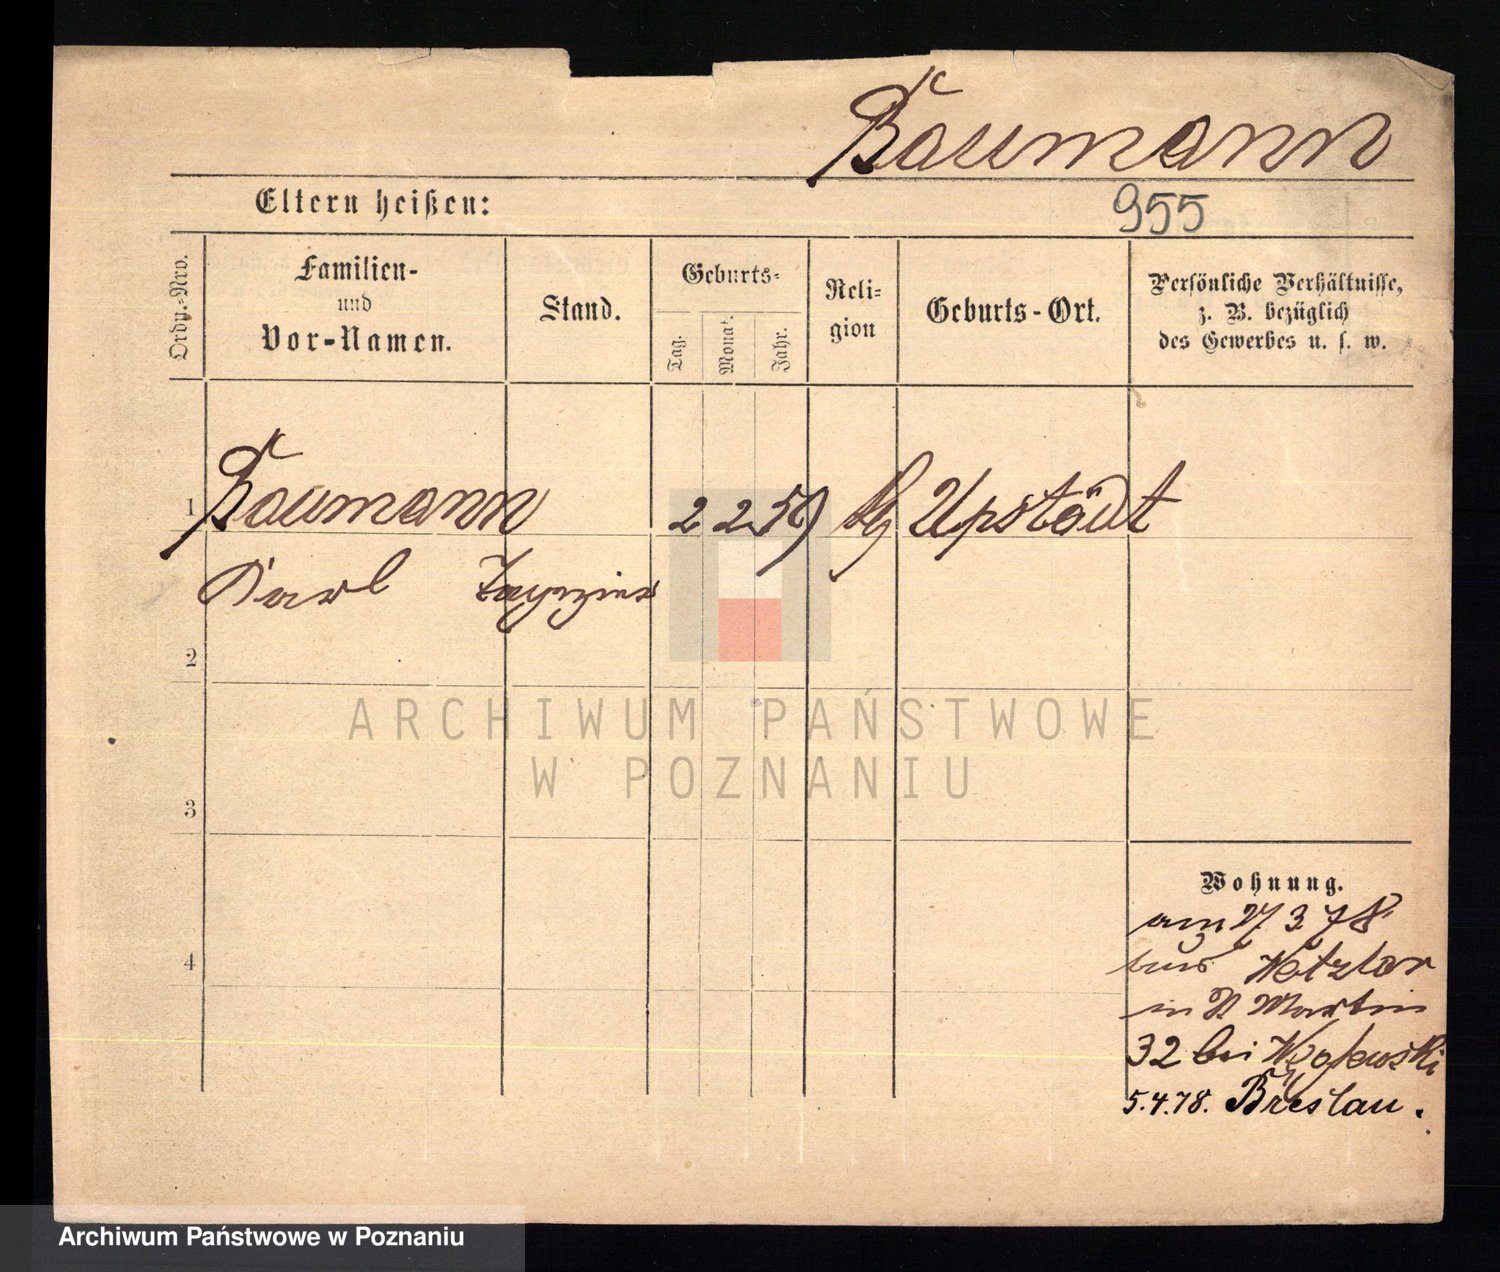 Baumann
Eltern heißen:
955
Ordn.-Nro.
Familien-
und
Vor-Namen.
Stand.
Geburts-
Tag.
Monat.
Jahr.
Reli-
gion
Geburts-Ort.
Persönliche Verhältnisse,
z. B. bezüglich
des Gewerbes u. s. w.
1
Baumann
2 2 59
Karl Tapezier
2
ARCHIWUM PAŃSTWOWE
W POZNANIU
3
Wohnung.
am 27 3 78
aus Wetzlar
in St Martin
32 bei
4
5.4.78. Breslau.
Archiwum Państwowe w Poznaniu